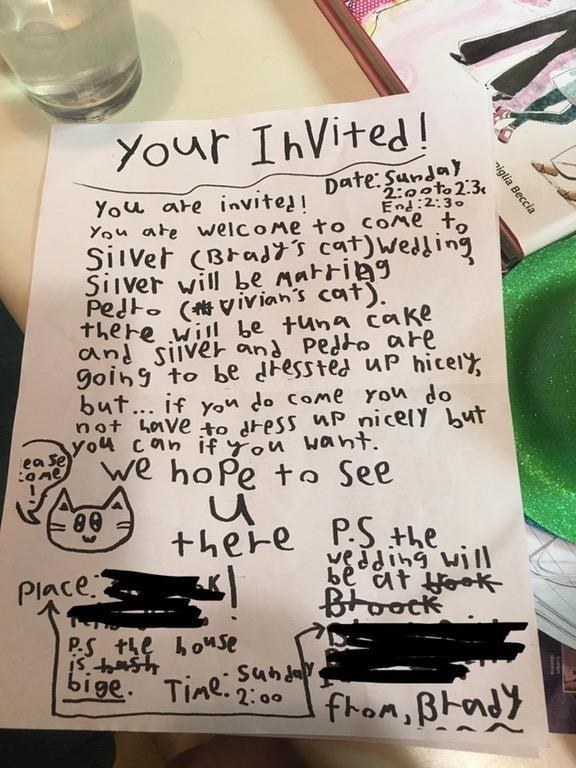 Your Invited!
Date: Sunday
2:00 to 2:30
End: 2:30
You are invited!
You are welcome to come to
Silver (Brady's cat) Wedding,
Silver will be Marring
Pedro (Vivian's cat).
there will be tuna cake
and silver and Pedro are
going to be dressted up nicely,
but... if you do come you do
not have to dress up nicely but
you can if you want.
we hope to see
u
there
ease
ome
!
Place: !
P.S the house
is bige.
Time: Sunday
2:00
P.S the
wedding will
be at
Broock
from, Brady
niglia Beccia